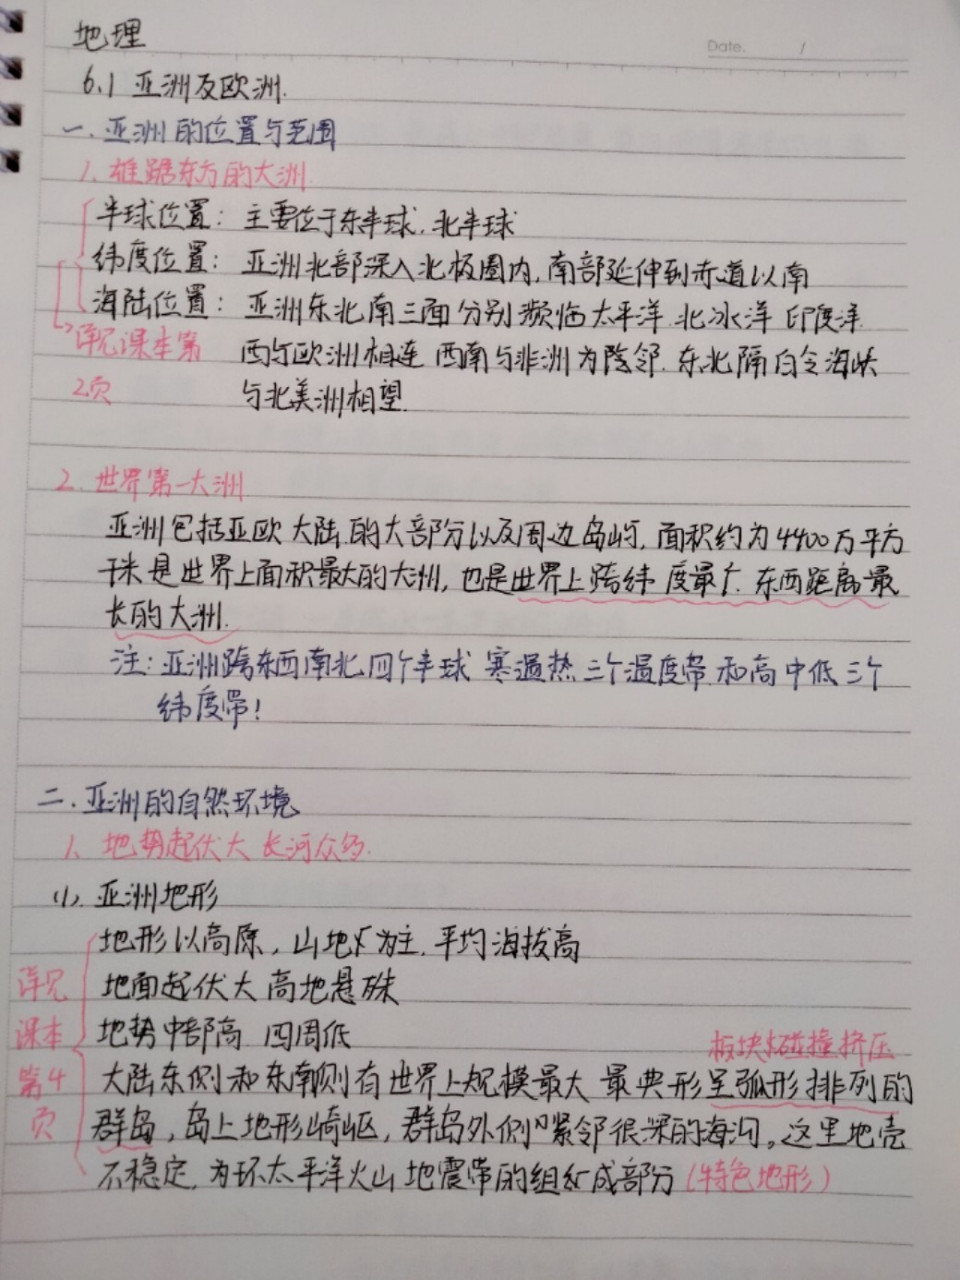 地理
Date. /
6.1 亚洲及欧洲.
一.亚洲的位置与范围
1.雄踞东方的大洲.
半球位置：主要位于东半球，北半球
纬度位置：亚洲北部深入北极圈内，南部延伸到赤道以南
海陆位置：亚洲东北南三面分别濒临太平洋 北冰洋 印度洋
详见课本第 西与欧洲相连 西南与非洲为陆邻. 东北隔白令海峡
2页 与北美洲相望.
2.世界第一大洲
亚洲包括亚欧大陆的大部分以及周边岛屿，面积约为4400万平方
千米是世界上面积最大的大洲，也是世界上跨纬度最广.东西距离最
长的大洲.
注：亚洲跨东西南北四个半球 寒温热三个温度带和高中低三个
纬度带！
二.亚洲的自然环境
1.地势起伏大 长河众多.
(1).亚洲地形
地形以高原，山地为主.平均海拔高
详见 地面起伏大 高地悬殊
课本 地势中部高 四周低
板块碰撞挤压
第4 大陆东侧和东南侧有世界上规模最大 最典形呈弧形排列的
页 群岛，岛上地形崎岖，群岛外侧紧邻很深的海沟。这里地壳
不稳定，为环太平洋火山地震带的组成部分（特色地形）